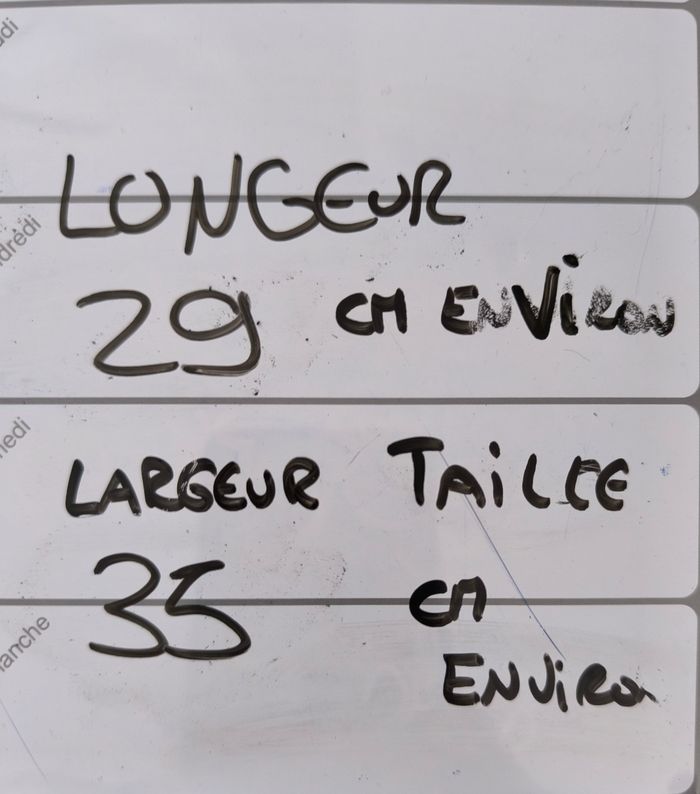 di
LONGEUR
dredi
29 CM ENViRON
nedi
LARGEUR TAiLLE
35 CM
anche
ENViRON